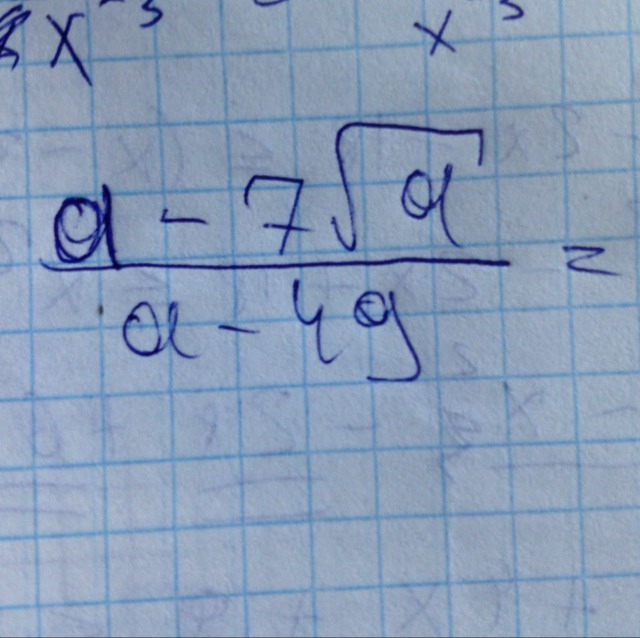 x⁻³ x³
a - 7√a
a - 49 =